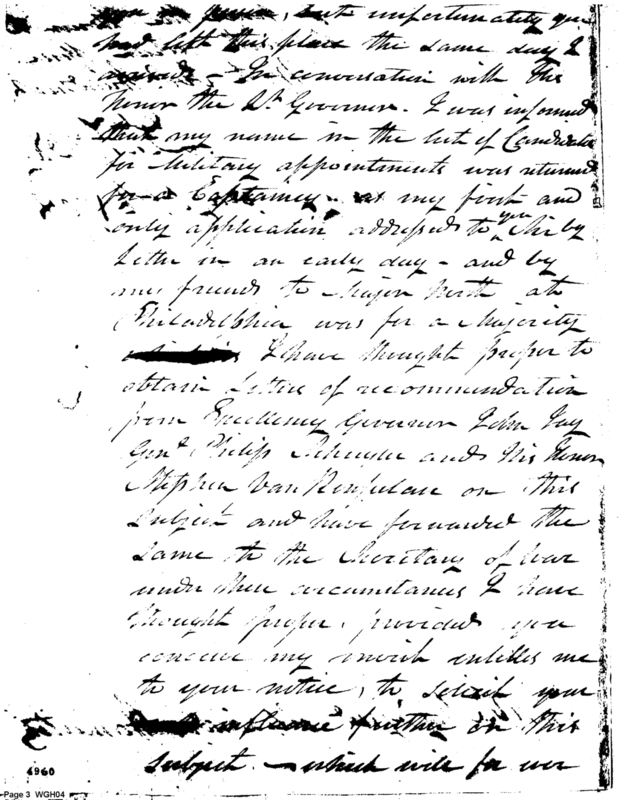 you in person, but unfortunately you
had left this place the same day I
arived – In conversation with his
honor the Lt Governor. I was informed
that my name in the list of Candidates
for Military appointments was returned
for a Captaincy – as my first and
only application addressed to you Sir by
Letter in an early day – and by
my friends to Major North at
Philadelphia was for a Majority
I have thought proper to
obtain Letters of recommendation
from Excellency Governor John Jay
Genl Philip Schuyler and His Honor
Stephen Van Renselaer on this
Subject and have forwarded the
Same to the Secretary of War
under these circumstances I have
thought proper, provided you
conceive my merit entitles me
to your notice, to solicit your
influence further on this
Subject. – which will for ever
4960
Page 3 WGH04